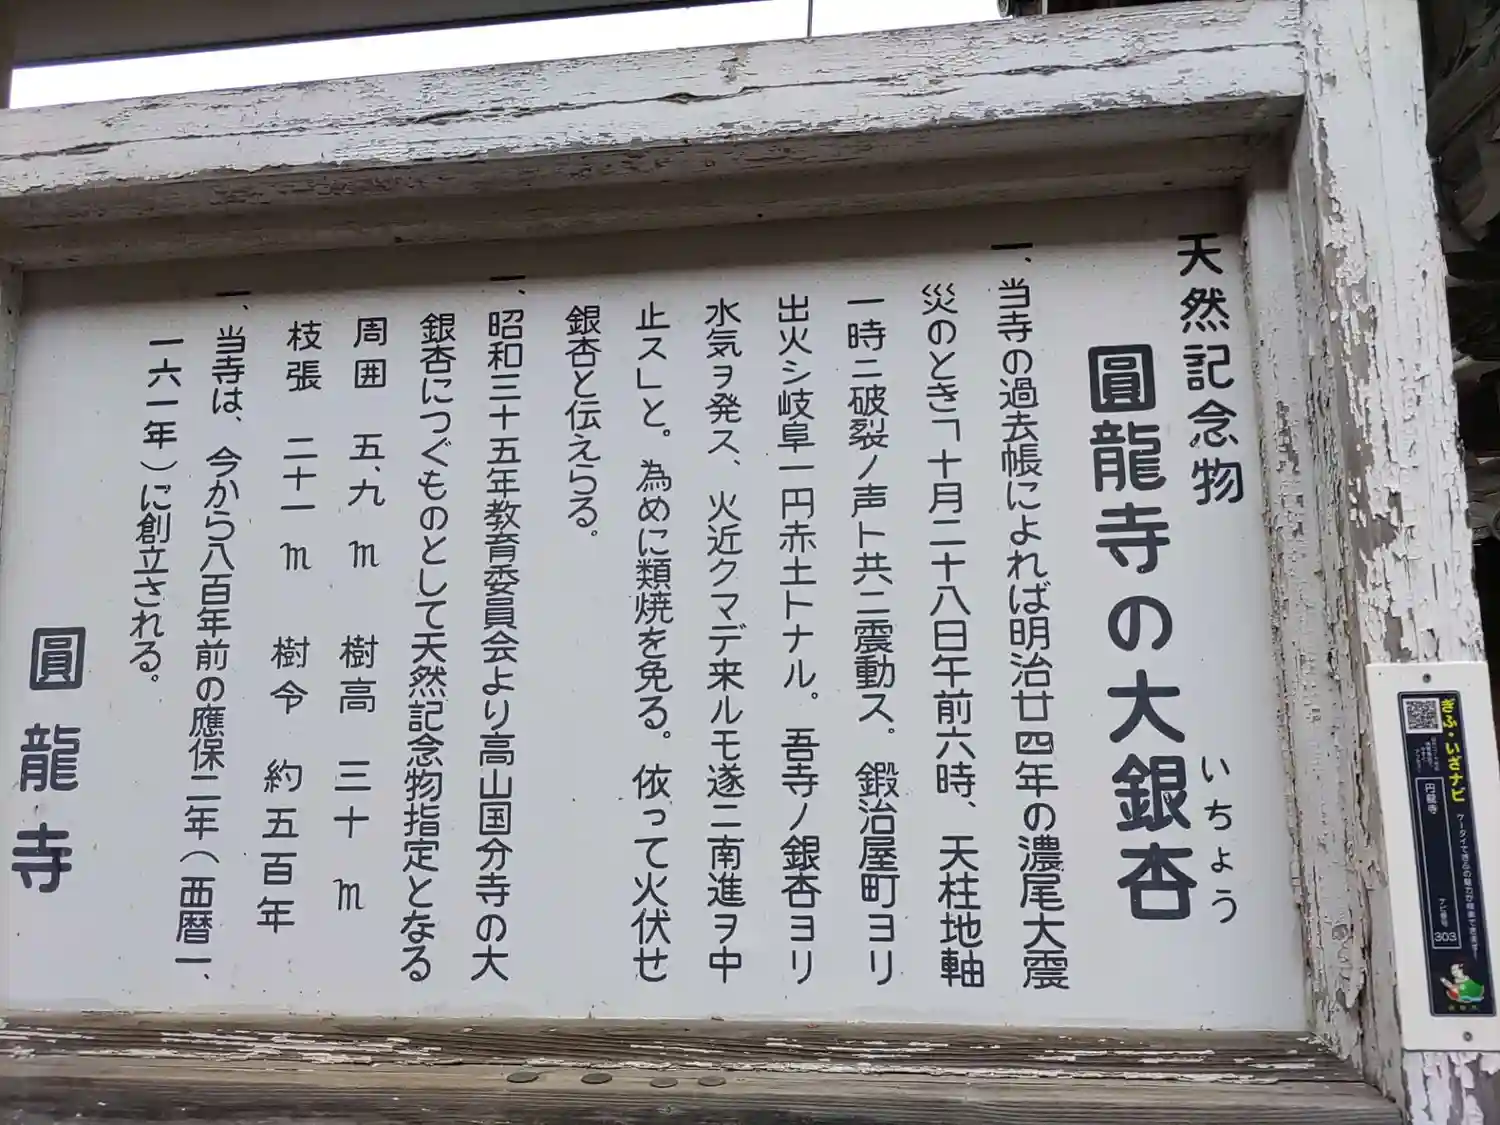 天然記念物
圓龍寺の大銀杏
いちょう
一、当寺の過去帳によれば明治廿四年の濃尾大震
災のとき「十月二十八日午前六時、天柱地軸
一時ニ破裂ノ声ト共ニ震動ス。鍛治屋町ヨリ
出火シ岐阜一円赤土トナル。吾寺ノ銀杏ヨリ
水気ヲ発ス、火近クマデ来ルモ遂ニ南進ヲ中
止ス」と。為めに類焼を免る。依って火伏せ
銀杏と伝えらる。
一、昭和三十五年教育委員会より高山国分寺の大
銀杏につぐものとして天然記念物指定となる
周囲 五、九 m 樹高 三十 m
枝張 二十一 m 樹令 約五百年
一、当寺は、今から八百年前の應保二年(西暦一、
一六一年)に創立される。
圓龍寺
ぎふ・いざナビ
ケータイでぎふの魅力が検索できます!
円龍寺
ナビ番号 303